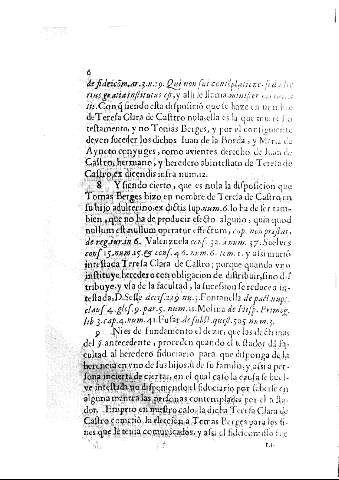 6
de fideicom. ar. 3. n. 19. Qui non sui contemplatione, sed alte
rius gratia institutus est, y assi se llama minister
tis. Con q̃ siendo esta disposició que se haze en nombre
de Teresa Clara de Castro nola, ella es la que muere
testamento, y no Tomas Berges, y por el consiguiente
deven suceder los dichos Juan de la Borda, y Maria de
Ayneto conyuges, como avientes derecho de Juan de
Castro, hermano, y heredero abintestato de Teresa de
Castro, ex dicendis infra num. 12.
8 Y siendo cierto, que es nola la disposicion que
Tomas Berges hizo en nombre de Teresa de Castro en
su hijo adulterino ex dictis sup. num. 6. lo ha de ser tam-
bien, que no ha de producir efecto alguno, quia quod
nullum est nullum operatur effectum, cap. non præstat,
de reg. iur. in 6. Valenzuela cons. 32. num. 37. Suelves
cons. 15. num. 15. & cons. 46. num. 6. tom. 1. y assi murió
intestada Teresa Clara de Castro; porque quando vno
instituye heredero con obligacion de distribuir, sino dis
tribuye, y vía de la facultad, la sucession se reduce a in-
testada, D. Sesse decis. 219 nu. Fontanella de pact. nupt.
claus. 4. glos. 9. par. 5. num. 11. Molina de Hisp. Primog.
lib. 3. cap. 4. num. 41. Fusar. de subst. quæst. 505 num. 3.
9 Ni es de fundamento el dezir, que las decisiones
del § antecedente, proceden quando el testador dá fa-
cultad al heredero fiduciario para que disponga de la
herencia en vno de sus hijos, ù de su familia, y assi a per-
sona incierta de ciertas, en el qual caso la causa se buel-
ve intestada no disponiendo el fiduciario por saberse en
alguna manera las personas contempladas por el testa-
dor. Empero en nuestro caso, la dicha Teresa Clara de
Castro cometió la eleccion a Tomas Berges para los fi-
nes que le tenia comunicados, y assi el fideicomiso fue